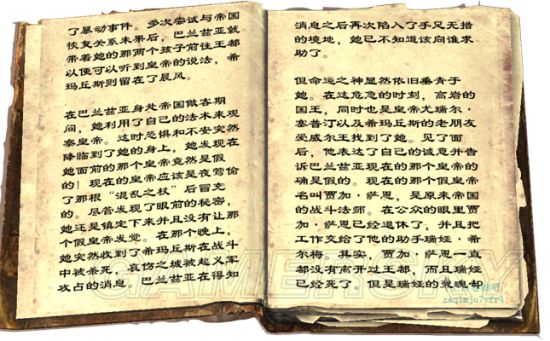 了暴动事件。多次尝试与帝国
恢复关系未果后，巴兰兹亚就
带着她的那两个孩子前往王都
以便可以听到皇帝的说法，希
玛丘斯则留在了晨风。
在巴兰兹亚身处帝国做客期
间，她利用了自己的法术来观
察皇帝。这时恐惧和不安突然
降临到了她的身上，她发现在
她面前的那个皇帝竟然是假
的！现在的皇帝应该是夜莺偷
了那根“混乱之杖”后冒充
的。尽管发现了眼前的秘密，
她还是镇定下来并且没有让那
个假皇帝发觉。在那个晚上，
她突然收到了希玛丘斯在战斗
中被杀死，哀伤之城被起义军
攻占的消息。巴兰兹亚在得知
消息之后再次陷入了手足无措
的境地，她已不知道该向谁求
助了。
但命运之神显然依旧垂青于
她。在这危急的时刻，高岩的
国王，同时也是皇帝尤瑞尔·
塞普汀以及希玛丘斯的老朋友
爱威尔王找到了她。见了面
后，他表达了自己的诚意并告
诉巴兰兹亚现在的那个皇帝的
确是假的。现在的那个假皇帝
名叫贾加·萨恩，是原来帝国
的战斗法师。在公众的眼里贾
加·萨恩已经退休了，并且把
工作交给了他的助手瑞娅·希
尔梅，其实，贾加·萨恩一直
都没有离开过王都，而且瑞娅
已经死了，但是瑞娅的灵魂却
GAMERSKY
zaqimju7vfr4